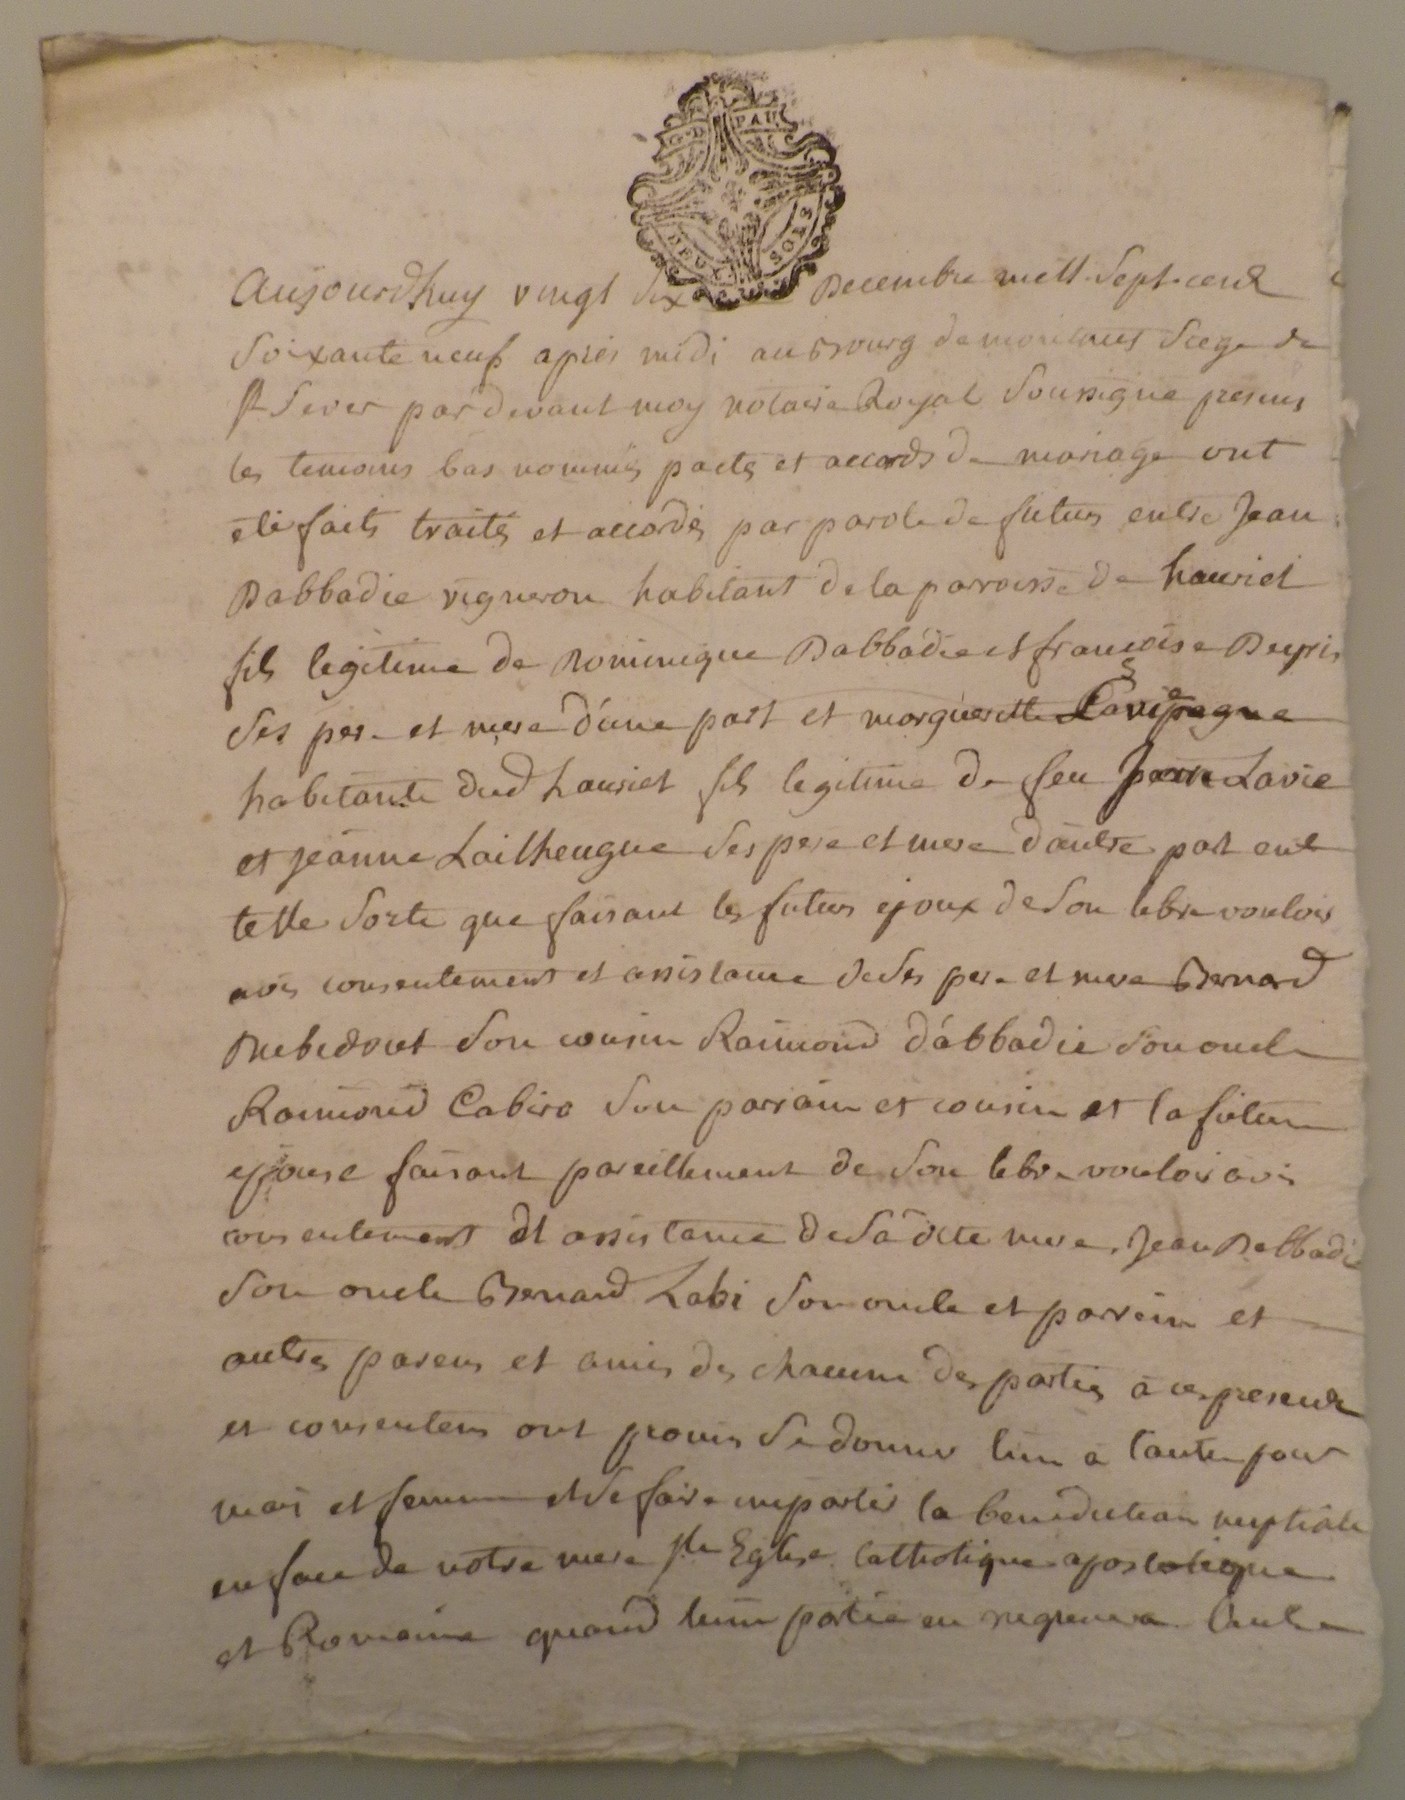 G. D. PAU
DEUX SOLS
Aujourdhuy vingt six Decembre mill Sept cent
Soixante neuf apres midi au Bourg de montaut Siege de
St Sever par devant moy notaire Royal Soussigne presens
les temoins bas nommés pactes et accords de mariage ont
eté faits traités et accordés par parole de futur entre Jean
Dabbadie vigneron habitant de la parroisse de hauriet
fils legitime de Dominique Dabbadie et françoise Deyris
Ses pere et mere d'une part et margueritte
habitante dud hauriet fils legitime de feu Lavie
et jeanne Lailheugue Ses pere et mere d'autre part en
telle Sorte que faisant les futurs epoux de Son libre vouloir
avis consentement et assistance de Ses pere et mere Bernard
Son cousin Raimond d'abbadie Son oncle
Raimond Cabiro Son parrain et cousin et la future
epouse faisant pareillement de Son libre vouloir avis
consentement et assistance de Sa dite mere, Jean Dabbadie
Son oncle Bernard Labi Son oncle et parrein et
autres parens et amis de chacune des parties à ce presents
et consentens ont promis Se donner lun a lautre pour
mari et femme et Se faire impartir la benediction nuptiale
en face de notre mere Ste Eglise Catholique apostolique
et Romaine quand lune partie en requerera lautre